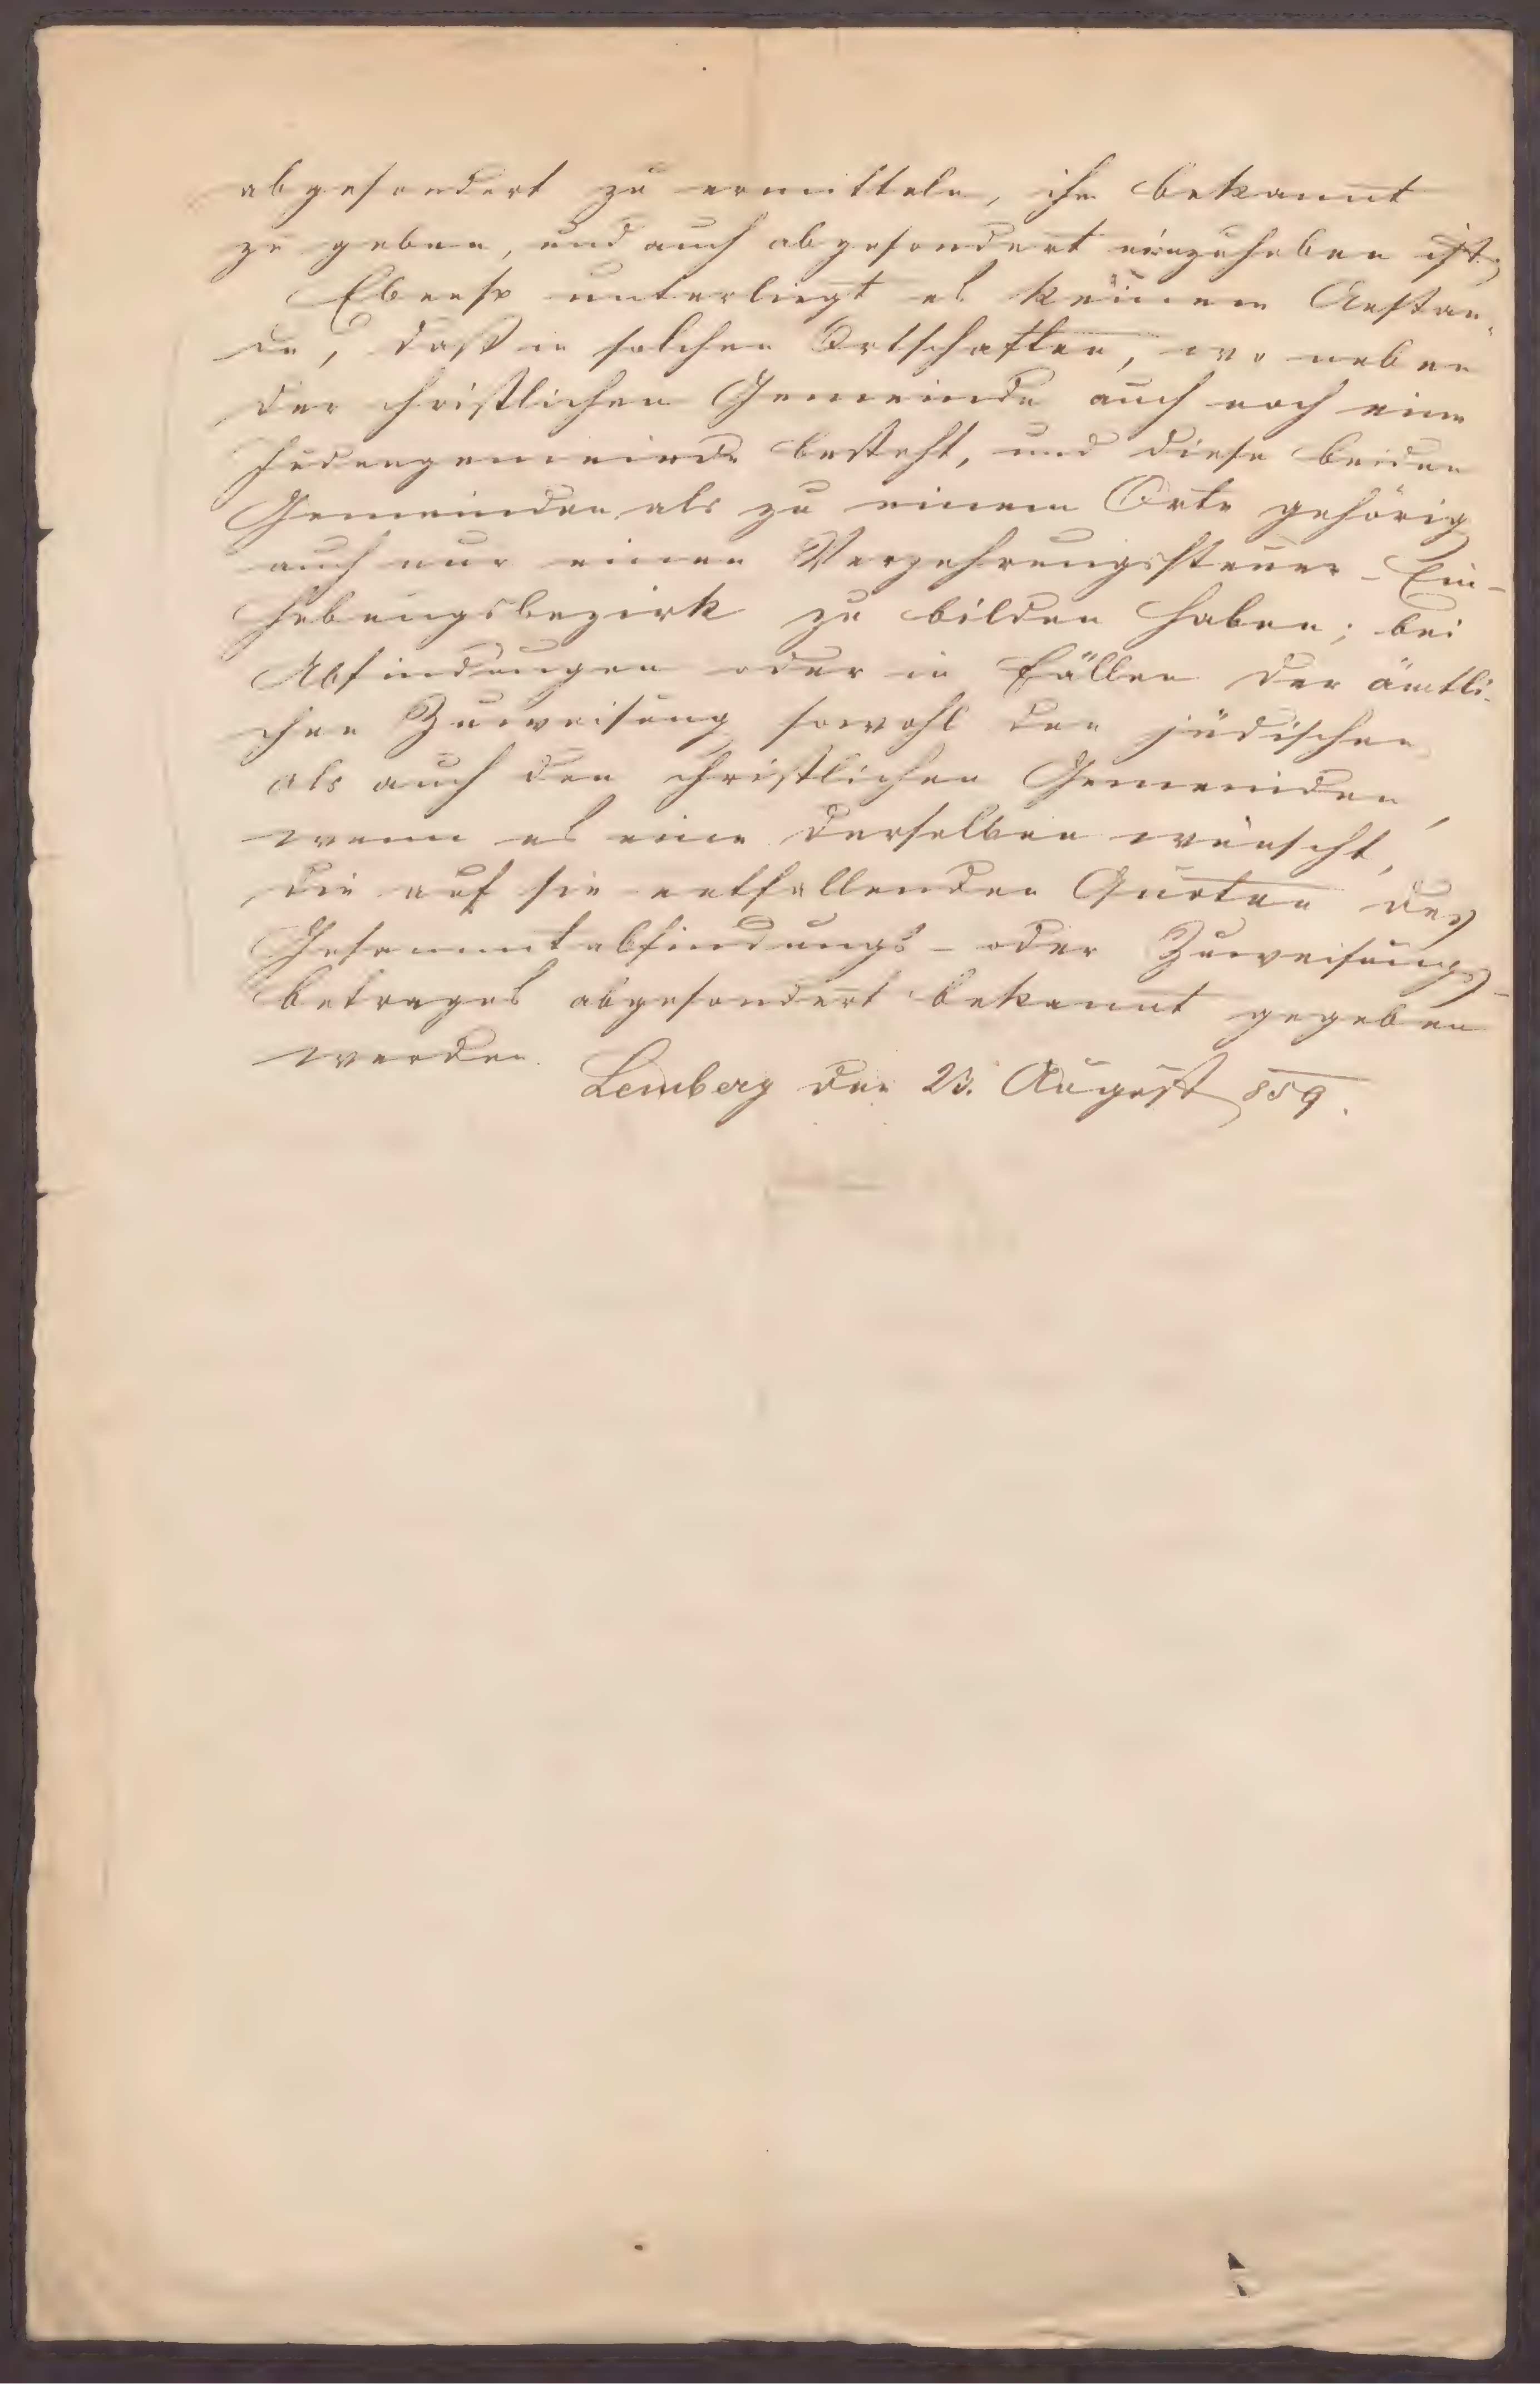 abgesondert zu ermitteln, ihr bekannt
zu geben, und auch abgesondert einzuheben ist.
Ebenso unterliegt es keinem Anstan-
de, daß in solchen Ortschaften, wo neben
der christlichen Gemeinde auch noch eine
Judengemeinde besteht, und diese beiden
Gemeinden als zu einem Orte gehörig
auch nur einen Verzehrungssteuer-Ein-
hebungsbezirk zu bilden haben; bei
Abfindungen oder in Fällen der ämtli-
chen Zuweisung sowohl den jüdischen
als auch den christlichen Gemeinden,
wenn es eine derselben wünscht,
die auf sie entfallenden Quoten des
Gesammtabfindungs- oder Zuweisungs-
betrages abgesondert bekannt gegeben
werden.
Lemberg den 23. August 859.